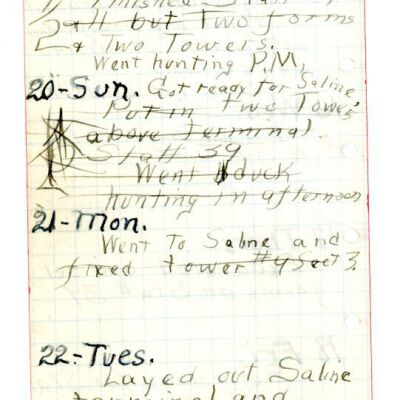 2 all but Two forms
& Two Towers.
Went hunting P.M.
20-Sun. Got ready for Saline,
Put in two Towers
above Terminal.
Staff 39
Went duck
hunting in afternoon
21-Mon.
Went To Salne and
fixed tower #4 Sect 3.
22-Tues.
Layed out Saline
terminal and